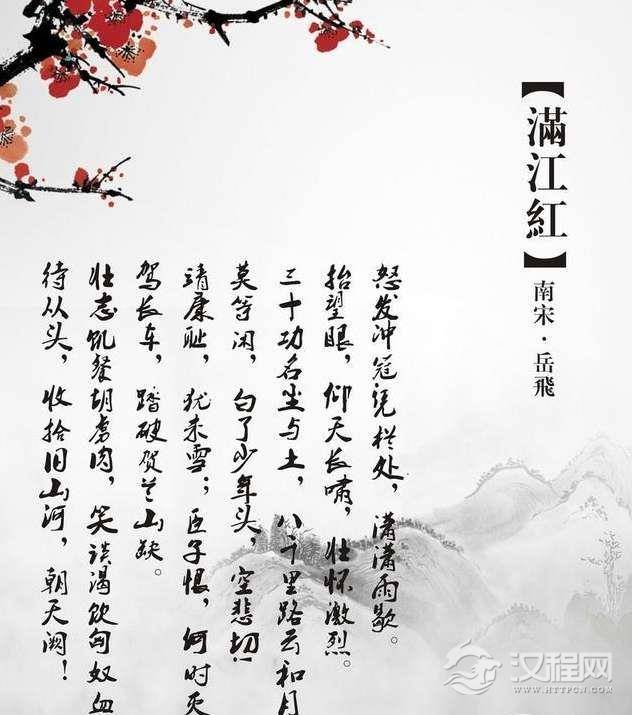 【滿江紅】
南宋·岳飛
怒发冲冠凭栏处，潇潇雨歇。
抬望眼，仰天长啸，壮怀激烈。
三十功名尘与土，八千里路云和月
莫等闲，白了少年头，空悲切！
靖康耻，犹未雪；臣子恨，何时灭
驾长车，踏破贺兰山缺。
壮志饥餐胡虏肉，笑谈渴饮匈奴血
待从头，收拾旧山河，朝天阙！
汉程网
WWW.HTTPCN.COM